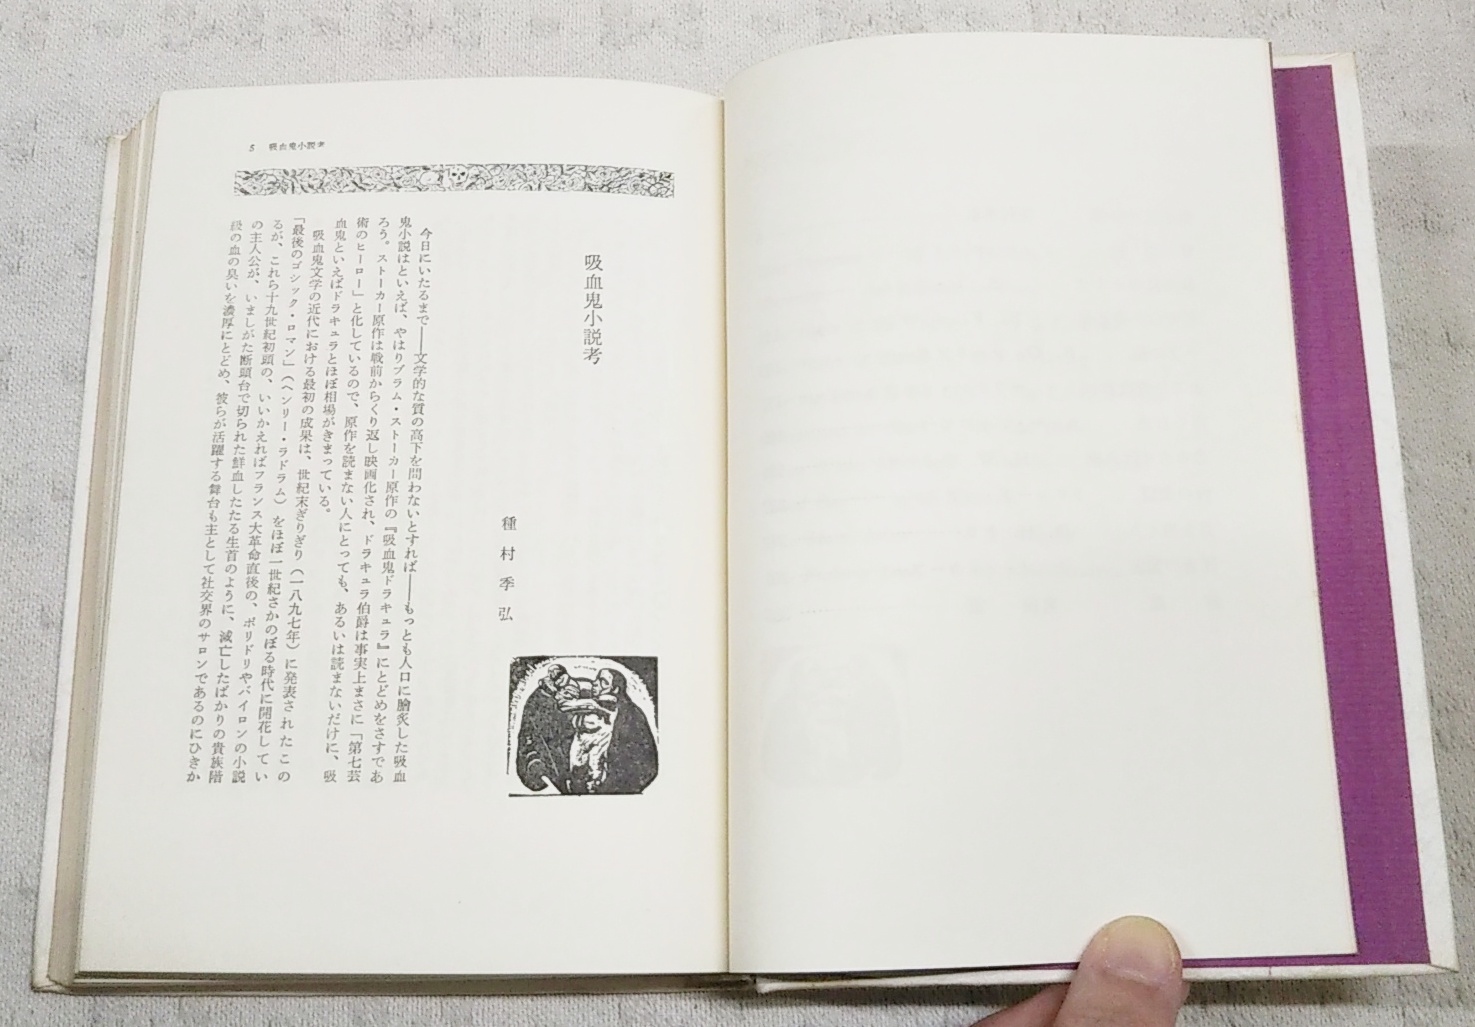 5 吸血鬼小説考
吸血鬼小説考
種村季弘
今日にいたるまで――文学的な質の高下を問わないとすれば――もっとも人口に膾炙した吸血
鬼小説はといえば、やはりブラム・ストーカー原作の『吸血鬼ドラキュラ』にとどめをさすであ
ろう。ストーカー原作は戦前からくり返し映画化され、ドラキュラ伯爵は事実上まさに「第七芸
術のヒーロー」と化しているので、原作を読まない人にとっても、あるいは読まないだけに、吸
血鬼といえばドラキュラとほぼ相場がきまっている。
吸血鬼文学の近代における最初の成果は、世紀末ぎりぎり（一八九七年）に発表されたこの
「最後のゴシック・ロマン」（ヘンリー・ラドラム）をほぼ一世紀さかのぼる時代に開花してい
るが、これら十九世紀初頭の、いいかえればフランス大革命直後の、ポリドリやバイロンの小説
の主人公が、いましがた断頭台で切られた鮮血したたる生首のように、滅亡したばかりの貴族階
級の血の臭いを濃厚にとどめ、彼らが活躍する舞台も主として社交界のサロンであるのにひきか